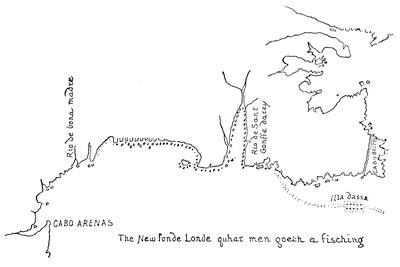 Rio de bona madre
Rio de Sant
Gonffe dacey
Illa dassa
CABO ARENAS
The New fonde Londe quhar men goeth a fisching